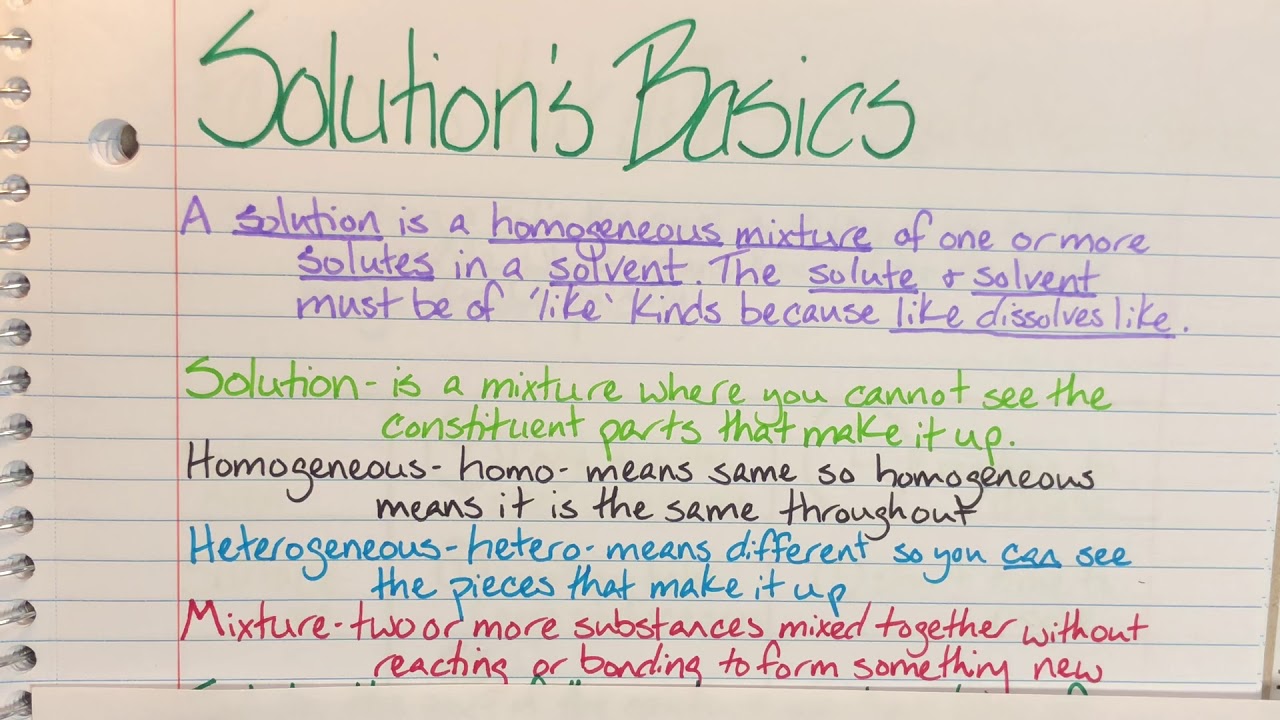 Solution's Basics
A solution is a homogeneous mixture of one or more
solutes in a solvent. The solute & solvent
must be of 'like' kinds because like dissolves like.
Solution - is a mixture where you cannot see the
constituent parts that make it up.
Homogeneous - homo - means same so homogeneous
means it is the same throughout
Heterogeneous - hetero - means different so you can see
the pieces that make it up
Mixture - two or more substances mixed together without
reacting or bonding to form something new